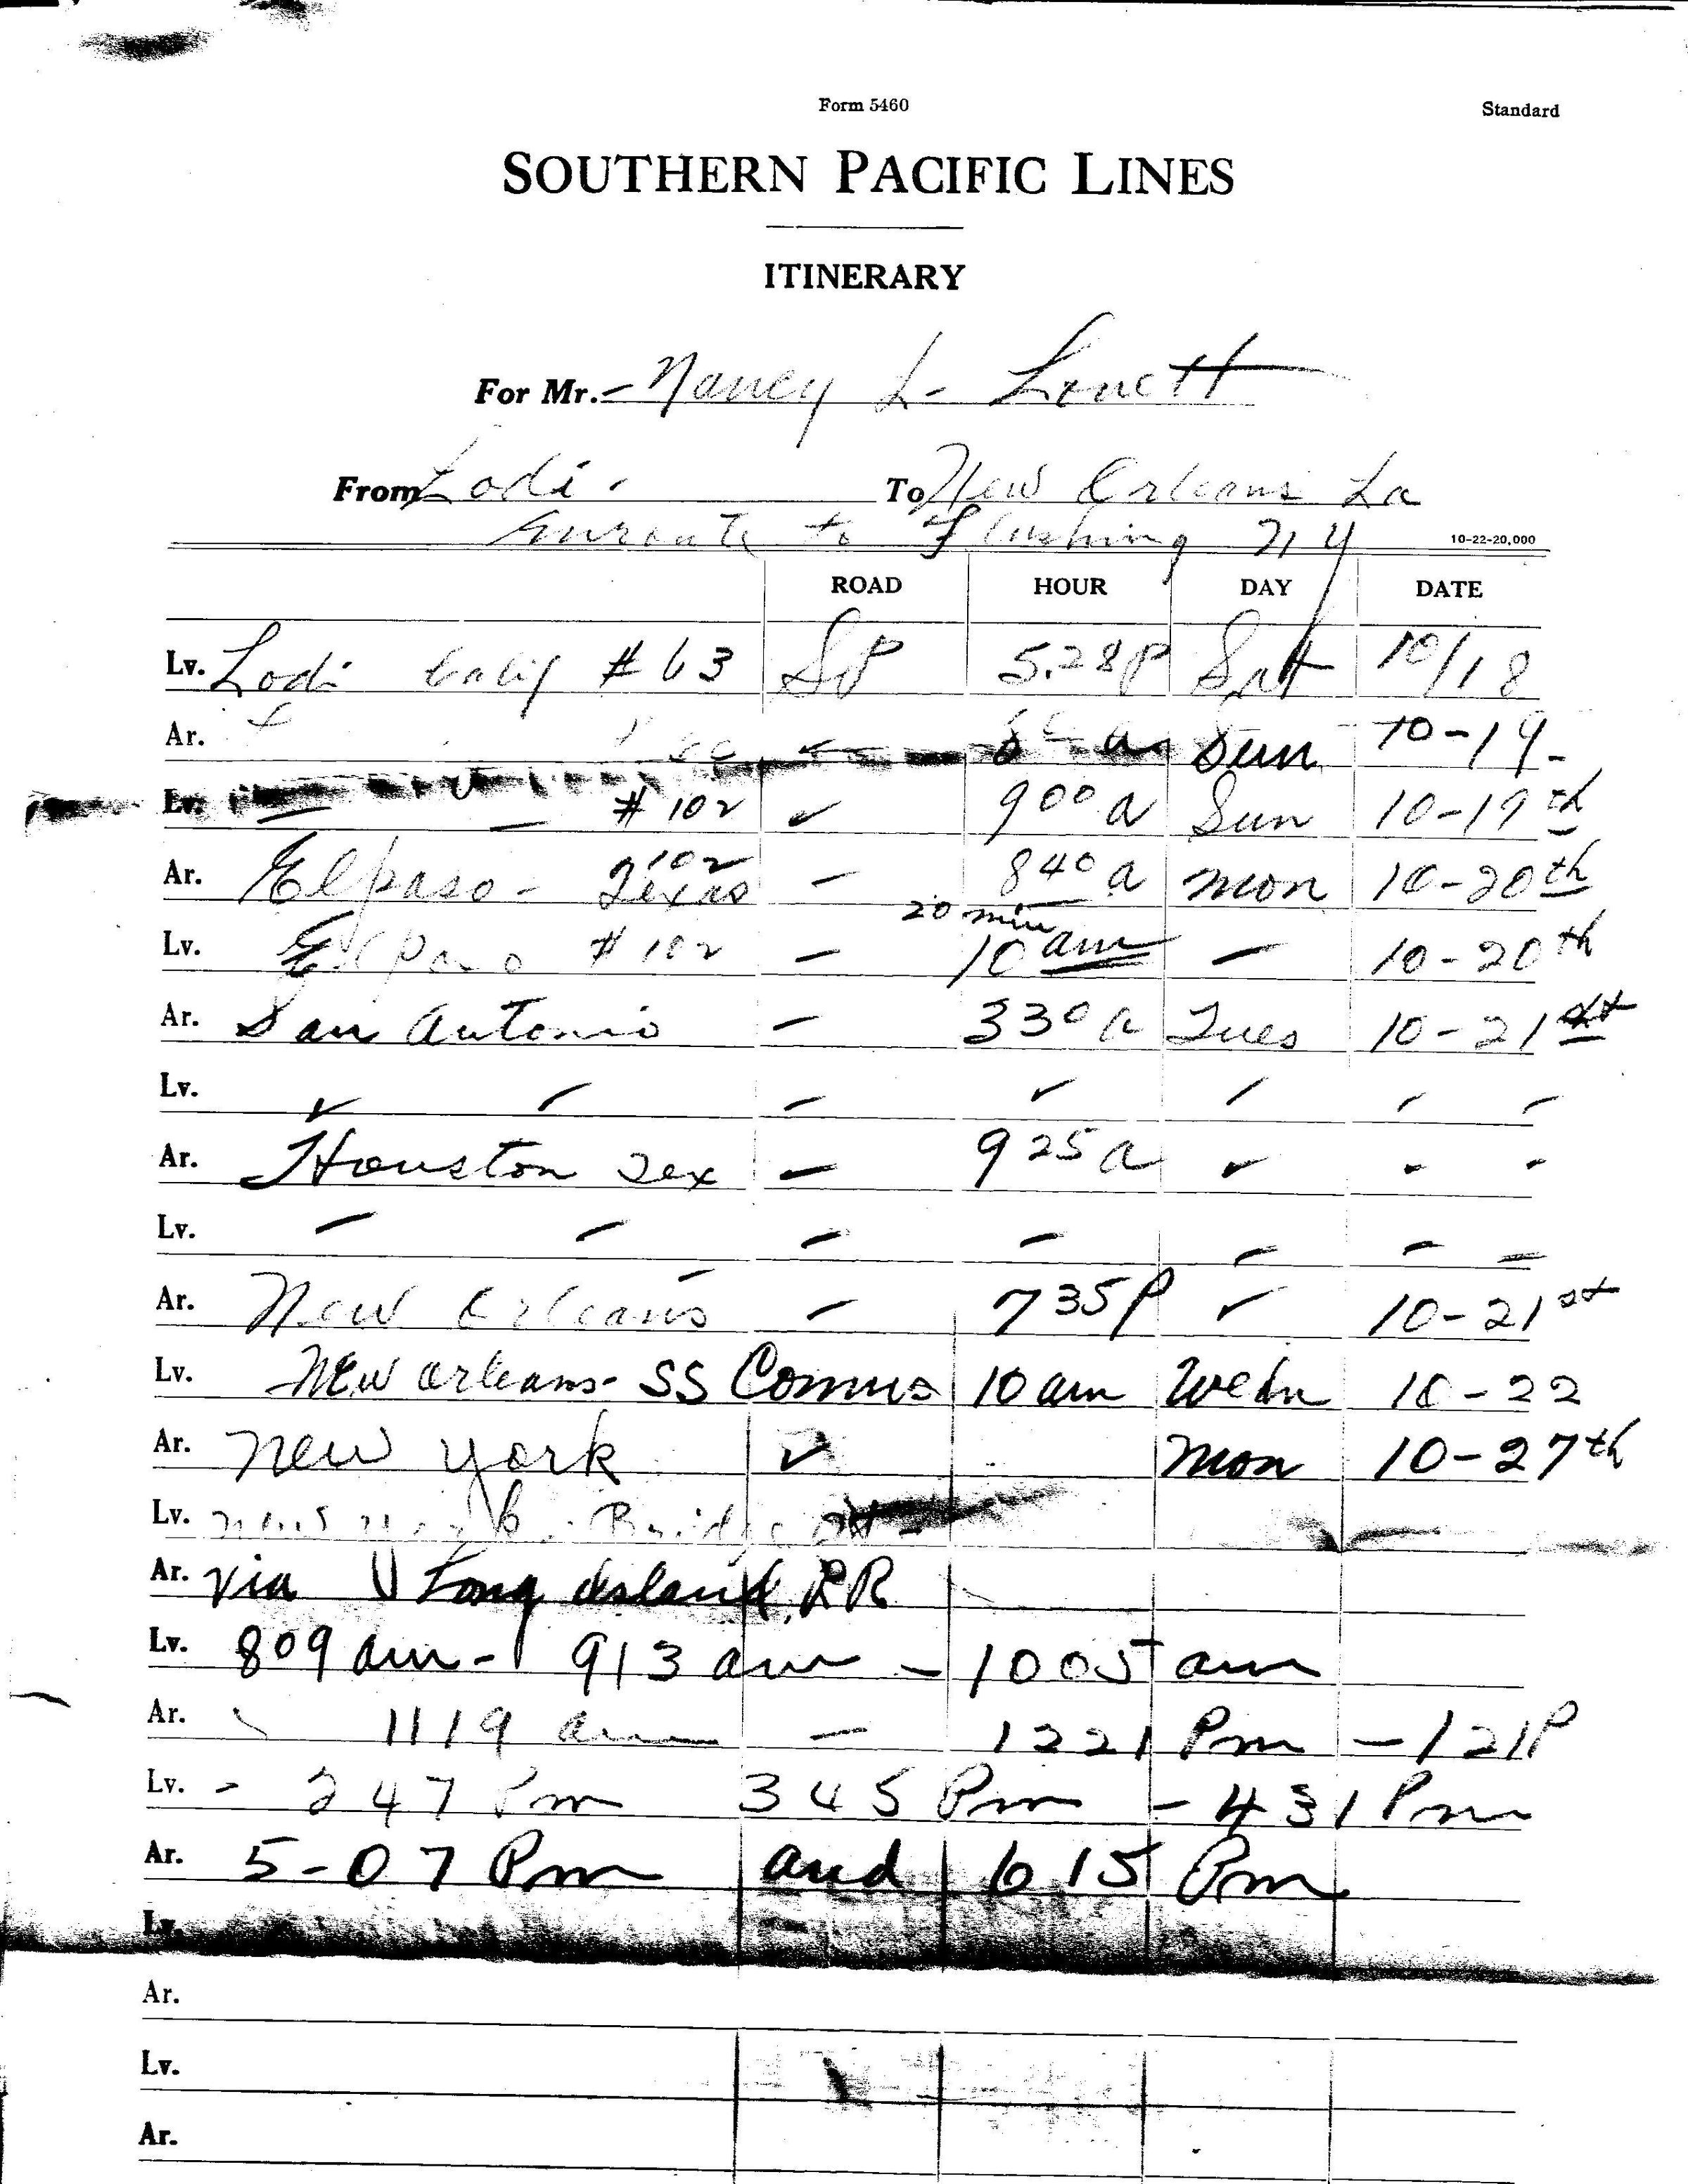 Form 5460
Standard
SOUTHERN PACIFIC LINES
ITINERARY
For Mr. - Nancy L-
From Lodi. To New Orleans La
Enroute to Flushing NY 10-22-20,000
ROAD HOUR DAY DATE
Lv. Lodi Calif # 63 SP 5.28P Sat 10/18
Ar. Sun 10-19-
Lv. # 102 ✓ 900 a Sun 10-19th
Ar. Elpaso - Texas 102 - 840 a mon 10-20th
20 min
Lv. El paso # 102 - 10 am - 10-20th
Ar. San Antonio - 330 a Tues 10-21st
Lv. ✓ ✓ - ✓ ✓ ✓ ✓
Ar. Houston Tex - 925 a ✓ - -
Lv. - - - - - - -
Ar. New Orleans - 735 P ✓ 10-21st
Lv. New Orleans - SS Comus 10 am Wedn 10-22
Ar. New York ✓ Mon 10-27th
Lv. New York
Ar. Via Long Island RR
Lv. 809 am - 913 am - 1005 am
Ar. 1119 am - 1221 Pm - 121P
Lv. - 247 Pm 345 Pm - 431 Pm
Ar. 5-07 Pm and 615 Pm
Lv.
Ar.
Lv.
Ar.